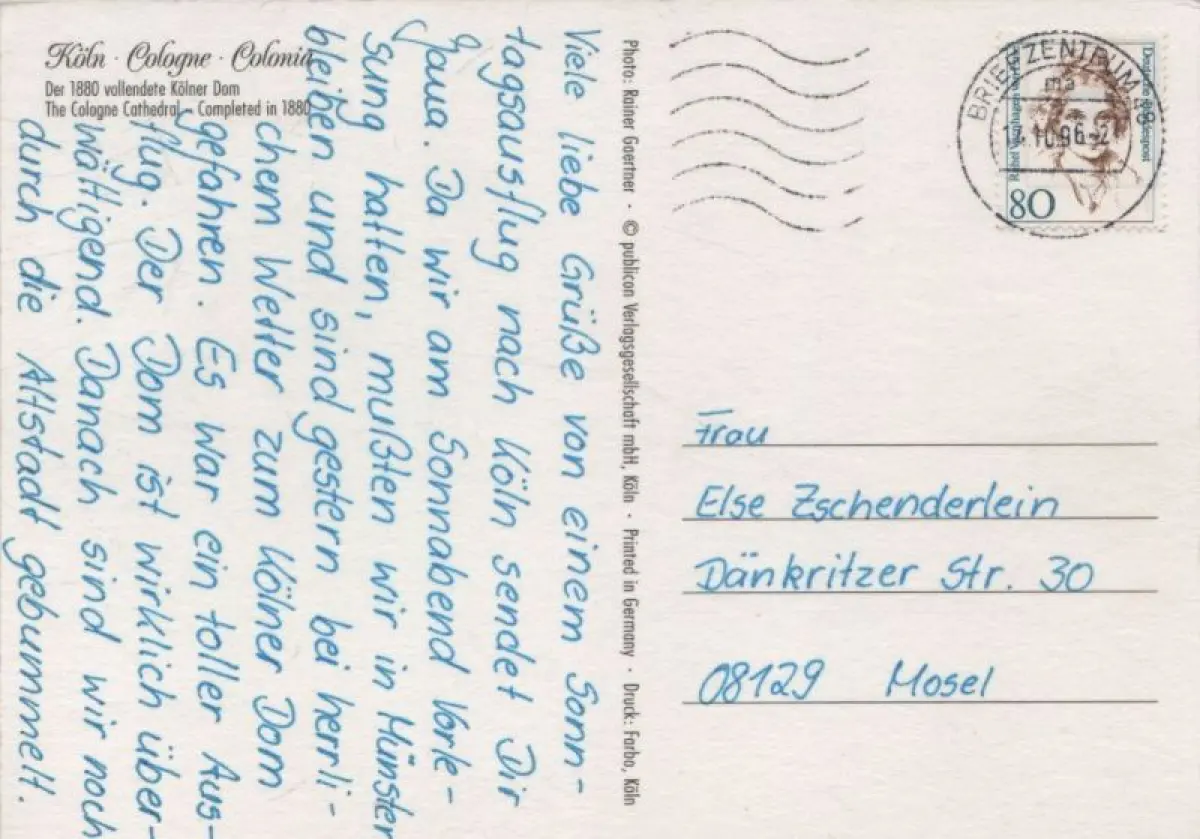 Köln · Cologne · Colonia
Der 1880 vollendete Kölner Dom
The Cologne Cathedral - Completed in 1880
Viele liebe Grüße von einem Sonn-
tagsausflug nach Köln sendet Dir
Jana. Da wir am Sonnabend Vorle-
sung hatten, mußten wir in Münster
bleiben und sind gestern bei herrli-
chem Wetter zum Kölner Dom
gefahren. Es war ein toller Aus-
flug. Der Dom ist wirklich über-
wältigend. Danach sind wir noch
durch die Altstadt gebummelt.
Photo: Rainer Gaertner · © publicon Verlagsgesellschaft mbH, Köln · Printed in Germany · Druck: Farbo, Köln
BRIEFZENTRUM 48
ma
10.96-2
Deutsche Bundespost
Rahel Varnhagen von Ense
80
Frau
Else Zschenderlein
Dänkritzer Str. 30
08129 Mosel